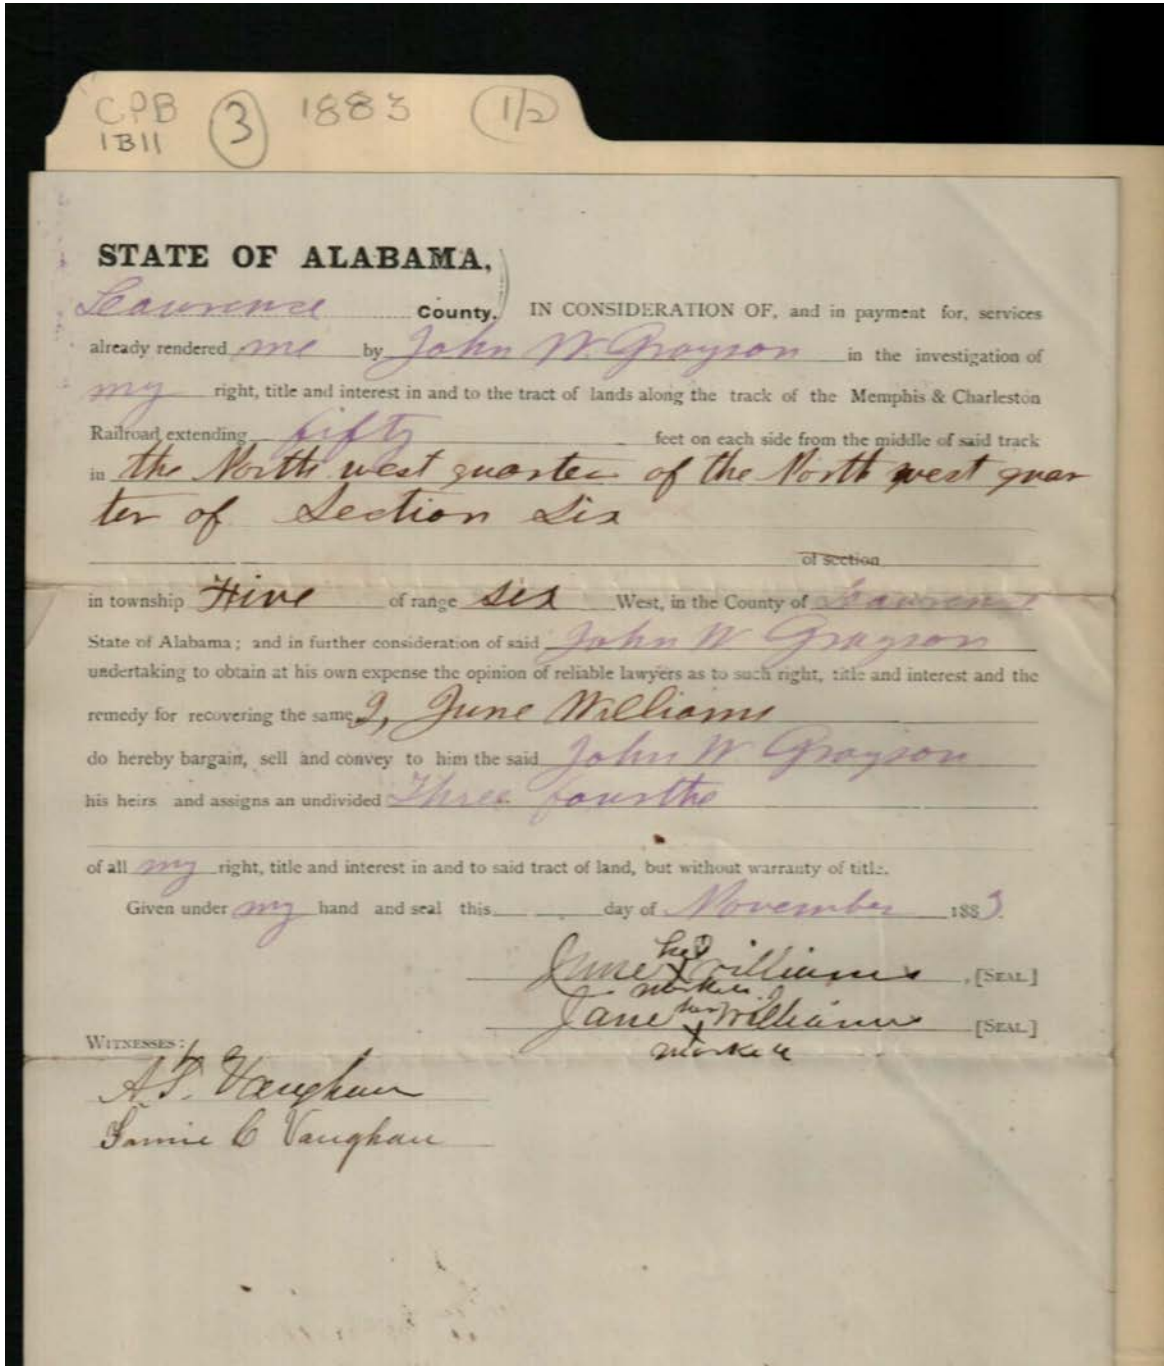 CPB 3 1883 1/2
1B11
STATE OF ALABAMA,
Lawrence County. IN CONSIDERATION OF, and in payment for, services
already rendered me by John W. Grayson in the investigation of
my right, title and interest in and to the tract of lands along the track of the Memphis & Charleston
Railroad extending fifty feet on each side from the middle of said track
in the North west quarter of the North west quar
ter of Section Six
of section
in township Five of range six West, in the County of Lawrence
State of Alabama; and in further consideration of said John W Grayson
undertaking to obtain at his own expense the opinion of reliable lawyers as to such right, title and interest and the
remedy for recovering the same I, June Williams
do hereby bargain, sell and convey to him the said John W Grayson
his heirs and assigns an undivided Three fourths
of all my right, title and interest in and to said tract of land, but without warranty of title.
Given under my hand and seal this day of November 1883.
his
June X Williams, [SEAL]
mark
her
Jane X Williams [SEAL]
mark
WITNESSES:
A. F. Vaughan
C Vaughan